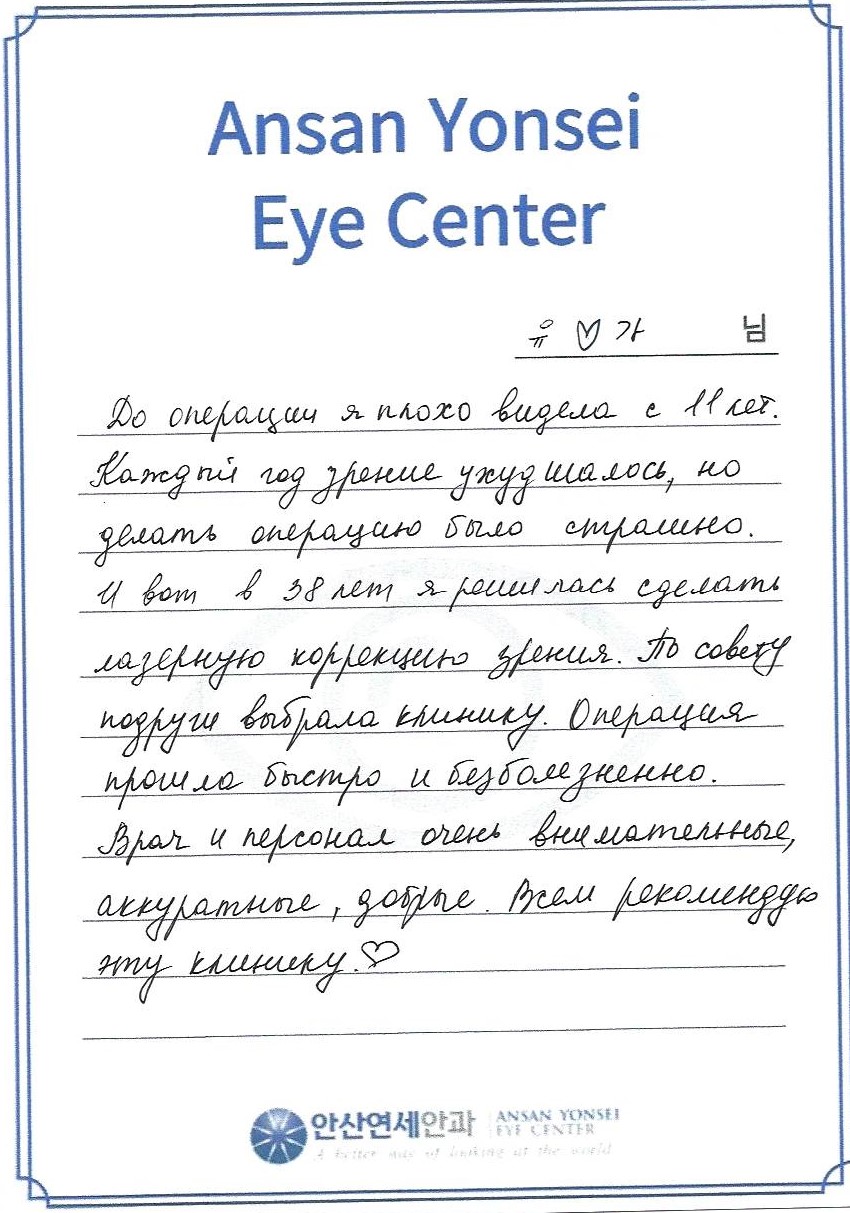 Ansan Yonsei
Eye Center
유♡가 님
До операции я плохо видела с 11 лет.
Каждый год зрение ухудшалось, но
делать операцию было страшно.
И вот в 38 лет я решилась сделать
лазерную коррекцию зрения. По совету
подруги выбрала клинику. Операция
прошла быстро и безболезненно.
Врач и персонал очень внимательные,
аккуратные, добрые. Всем рекомендую
эту клинику.♡
안산연세안과 ANSAN YONSEI
EYE CENTER
A better way of looking at the world